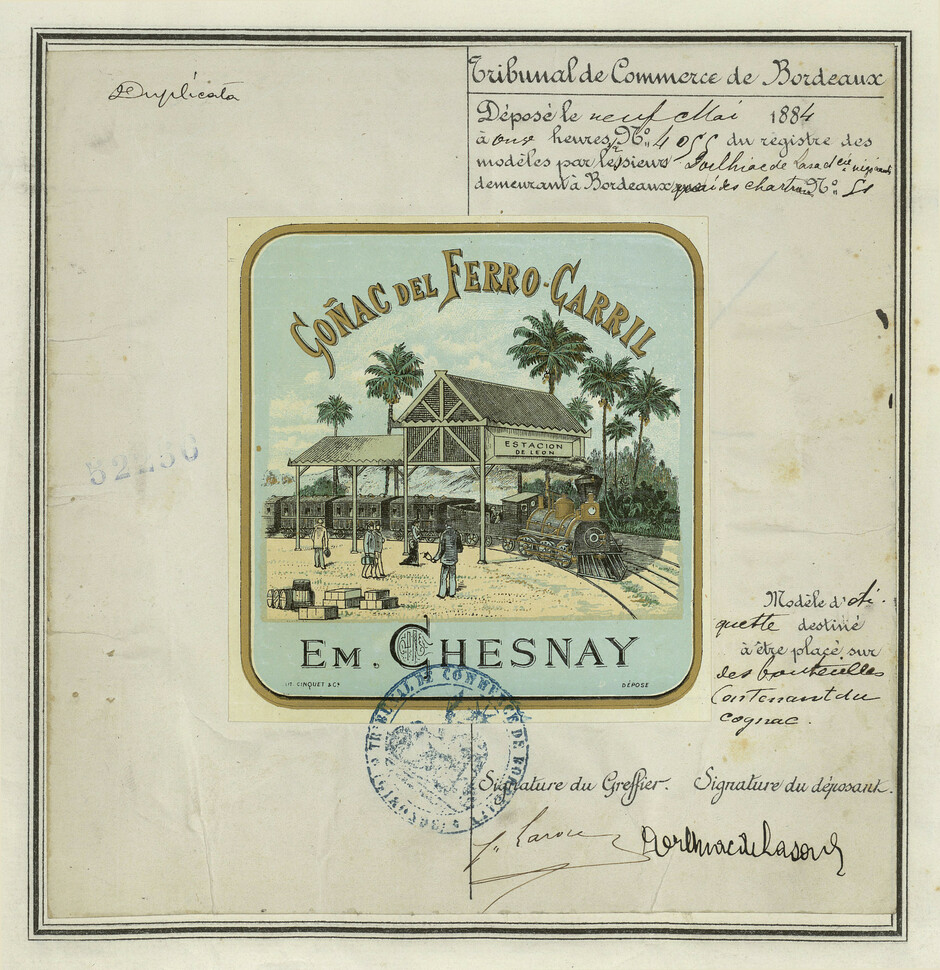 Duplicata
Tribunal de Commerce de Bordeaux
Déposé le neuf Mai 1884
à onze heures, N° 4055 du registre des
modèles par les sieurs de Lasa
demeurant à Bordeaux quai des chartrons N°
COÑAC DEL FERRO-CARRIL
ESTACION
DE LEON
52250
Modèle d'éti-
quette destiné
à être placé sur
des bouteilles
Contenant du
cognac.
EM. CHESNAY
LIT. CINQUET & Cº
DÉPOSÉ
TRIBUNAL DE COMMERCE DE BORDEAUX
Signature du Greffier. Signature du déposant.